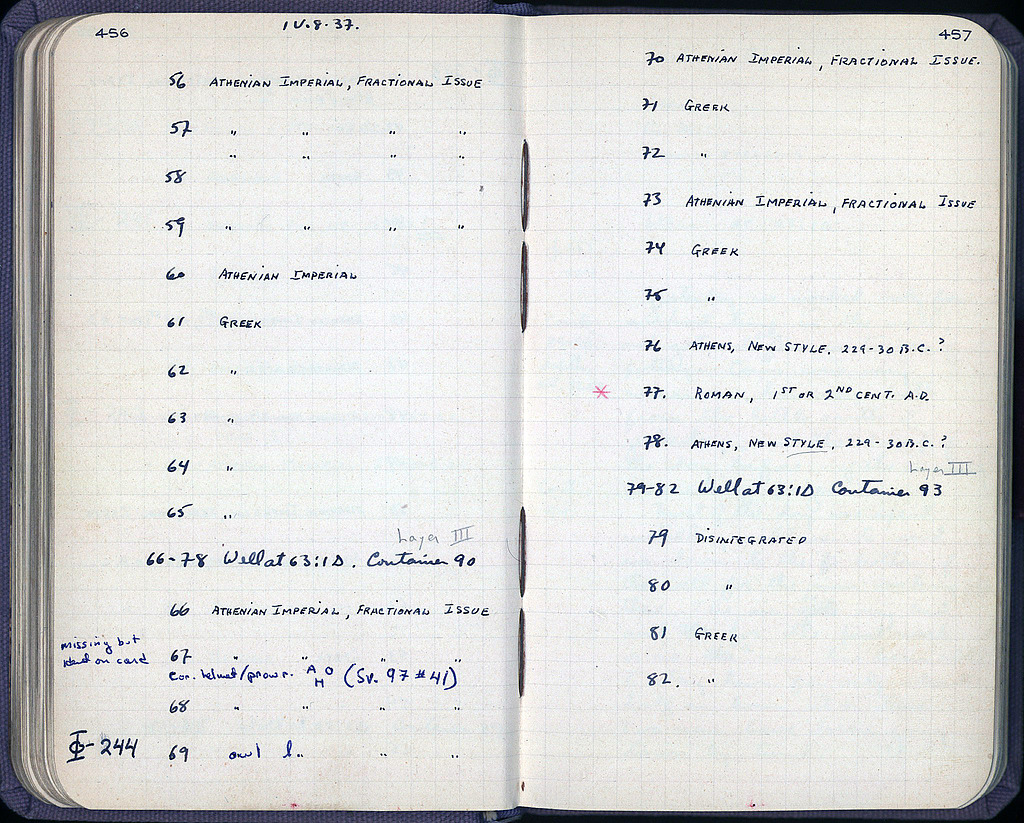 456
IV.8.37.
56 ATHENIAN IMPERIAL, FRACTIONAL ISSUE
57 " " " "
" " " "
58
59 " " " "
60 ATHENIAN IMPERIAL
61 GREEK
62 "
63 "
64 "
65 "
Layer III
66-78 Well at 63:ID. Container 90
66 ATHENIAN IMPERIAL, FRACTIONAL ISSUE
missing but
ident on card
67 " " " "
Cor. helmet/prow r. A O
H (Sv. 97 #41)
68 " " " "
Φ-244
69 owl l. " " "
457
70 ATHENIAN IMPERIAL, FRACTIONAL ISSUE.
71 GREEK
72 "
73 ATHENIAN IMPERIAL, FRACTIONAL ISSUE
74 GREEK
75 "
76 ATHENS, NEW STYLE. 229-30 B.C.?
* 77. ROMAN, 1ST OR 2ND CENT. A.D.
78. ATHENS, NEW STYLE, 229-30 B.C.?
Layer III
79-82 Well at 63:ID Container 93
79 DISINTEGRATED
80 "
81 GREEK
82. "